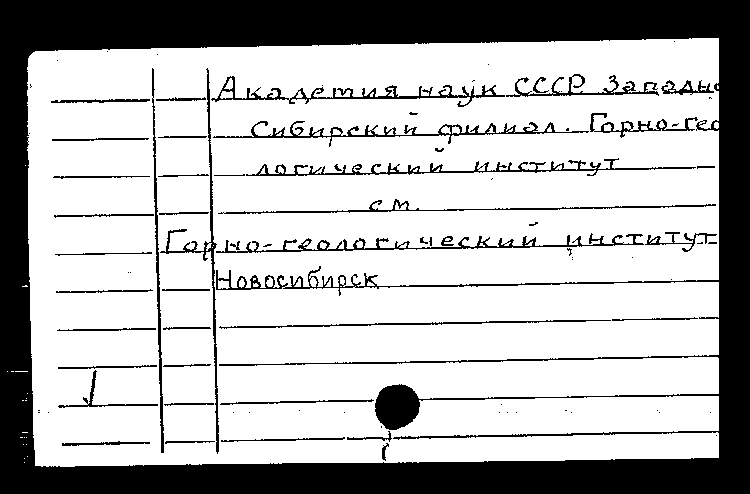 Академия наук СССР. Западно
Сибирский филиал. Горно-гео
логический институт
см.
Горно-геологический институт
Новосибирск